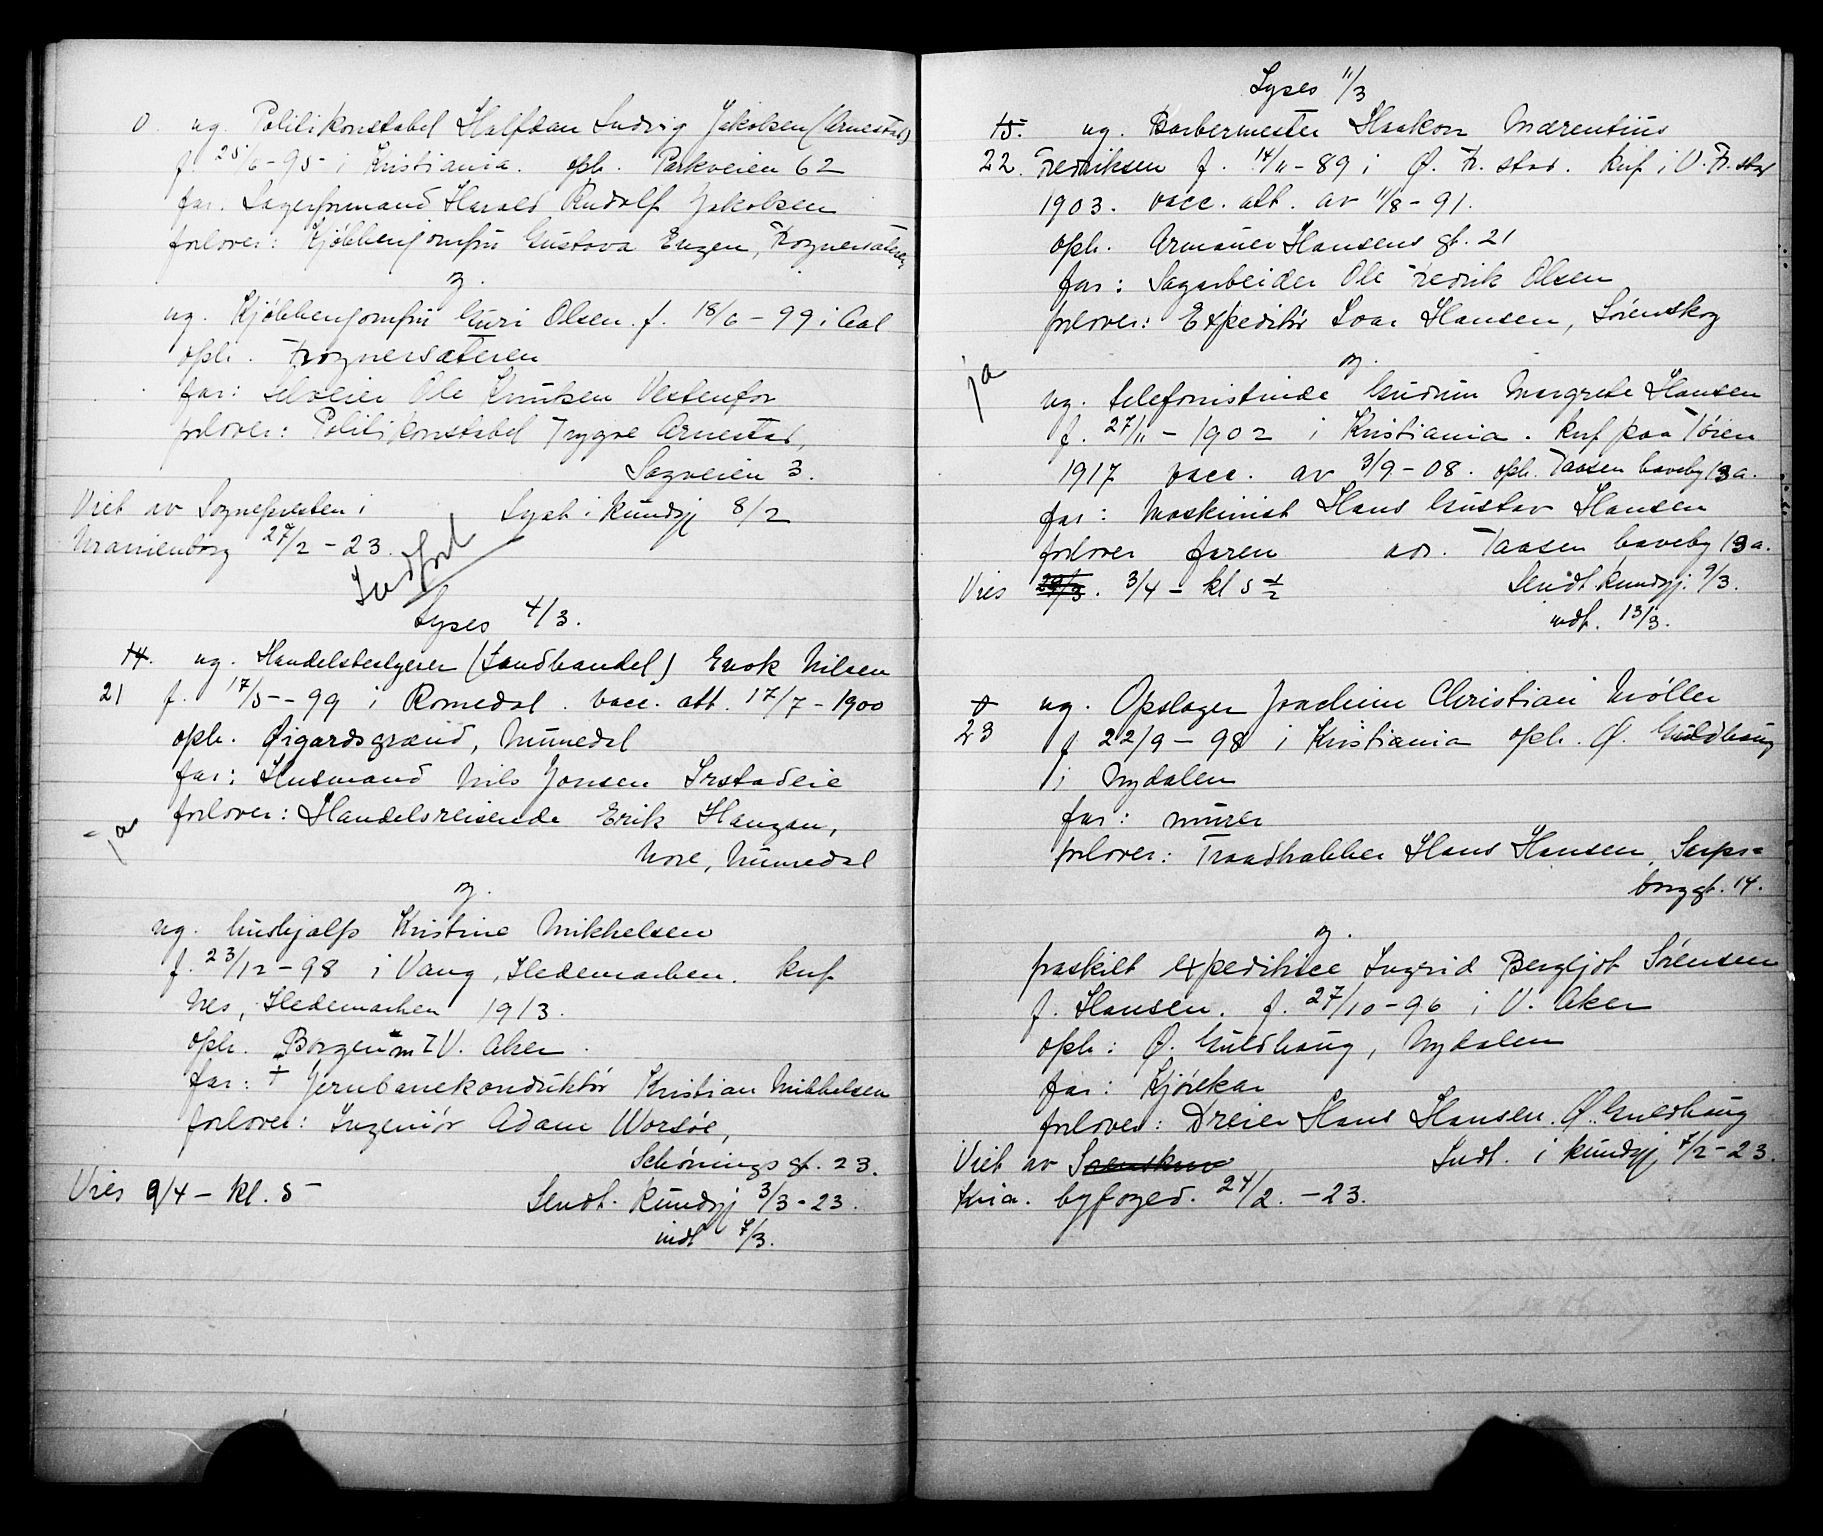 0. ug. Politikonstabel Halfdan Ludvig Jakobsen (Arnestad)
f. 25/6-95 i Kristiania. oph. Parkveien 62
far. Lagerformand Harald Rudolf Jakobsen
forlover: Kjøkkenjomfru Gustava Engen, Frognersæteren
og.
ug. Kjøkkenjomfru Guri Olsen. f. 18/6-99 i Aal
oph. Frognersæteren
far: selveier Ole Knutsen Vestenfor
forlover: Politikonstabel Trygve Arnestad,
Sagveien 3.
Viet av Sognepresten i Lyst i kundgj 8/2
Uranienborg 27/2-23.
Indført
Lyses 4/3.
14. ug. Handelsbestyrer (Landhandel) Enok Nilsen
21 f. 17/5-99 i Romedal. vacc. att. 17/7-1900
oph. Øigardsgrænd, Numedal
far: Husmand Nils Jonsen
forlover: Handelsreisende Erik Haugan,
Nore, Numedal
ja
og.
ug. hushjælp Kristine Mikkelsen
f. 23/12-98 i Vang, Hedemarken. knf
Nes, Hedemarken 1913.
oph. Borgen V. Aker.
far: + Jernbanekonduktør Kristian Mikkelsen
forlover: Ingeniør Adam Worsøe,
Schønings gt. 23.
Vies 9/4 - kl. 5 - Sendt. Kundgj 3/3-23.
indt 7/3.
Lyses 11/3
15. ug. Barbermester Haakon Marentius
22. Fredriksen f. 14/11-89 i Ø. Fr. stad. knf i V. Fr. stad
1903. vacc. att. av 11/8-91.
oph. Armauer Hansens gt. 21
far: Sagarbeider Ole Fredrik Olsen
forlover: Expeditør Hansen, Lørenskog
og.
ja
ug. telefonistinde Gudrun Margrete Hansen
f. 27/11-1902 i Kristiania. knf paa Tøien
1917 vacc. av 3/9-08. oph. Taasen haveby 13a.
far: Maskinist Hans Gustav Hansen
forlover faren adr. Taasen haveby 13a.
Vies 3/4 - kl 5 1/2 Sendt kundgj. 9/3.
indt. 13/3.
0 ug. Opslager Joachim Christian Møller
23 f 22/9-98 i Kristiania oph. Ø. Guldhaug
i Nydalen
far: murer
forlover: Traadtrækker Hans Hansen, Sarps=
borggt. 14.
og.
fraskilt expeditrice Ingrid Bergljot Sørensen
f. Hansen. f. 27/10-96 i V. Aker
oph: Ø. Guldhaug, Nydalen
far: Kjørekar
forlover: Dreier Hans Hansen. Ø. Guldhaug
Viet av Indt. i kundgj 7/2-23.
Kria. byfoged. 24/2.-23.